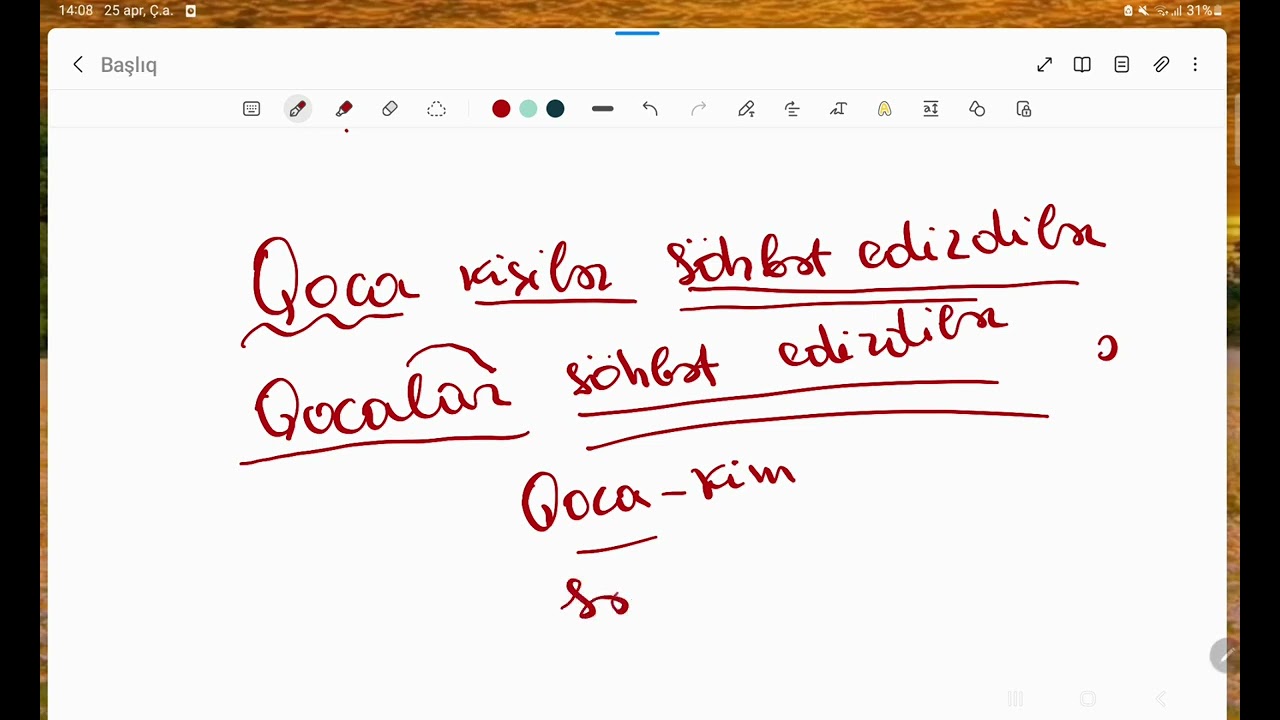 14:08 25 apr, Ç.a. 31%
Başlıq
Qoca kişilər söhbət edirdilər
Qocalar söhbət edirdilər
Qoca - kim